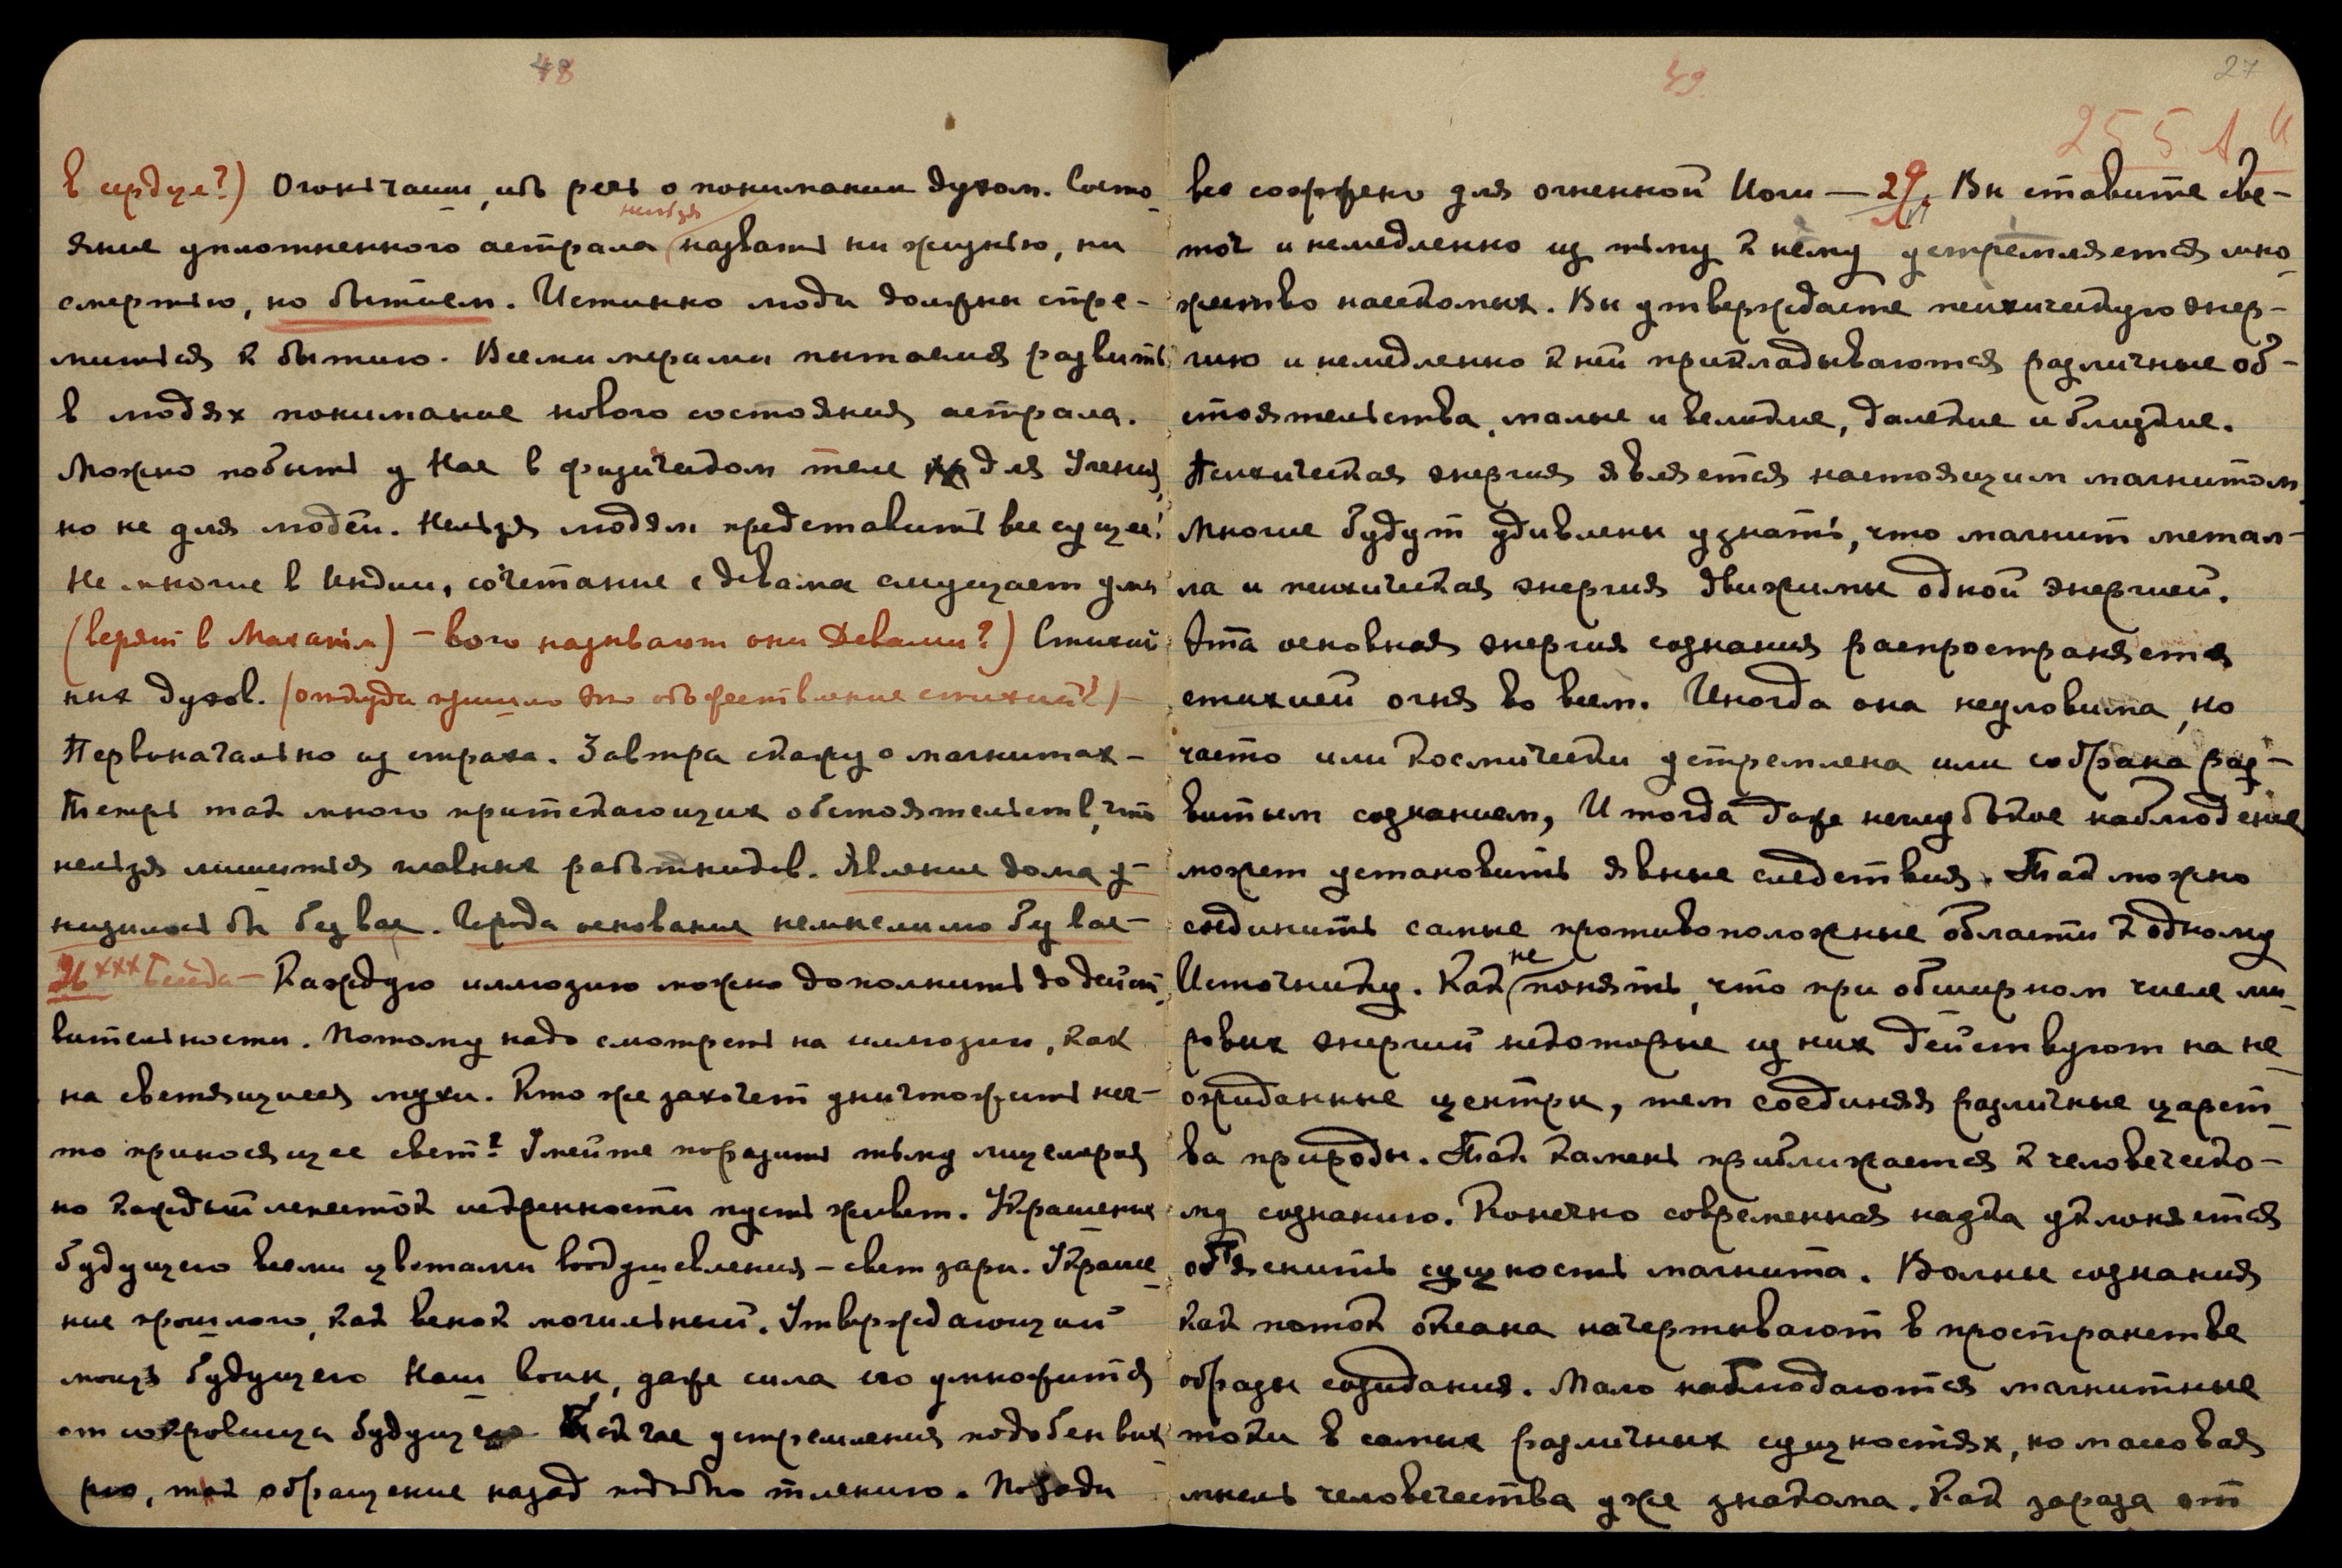 48
в сердце?) Окончании, ибо речь о понимании духом. Состо-
нельзя
яние уплотненного астрала назвать ни жизнью, ни
смертью, но бытием. Истинно люди должны стре-
миться к бытию. Всеми мерами пытаемся развить
в людях понимание нового состояния астрала.
Можно побыть у Нас в физическом теле для Учения,
но не для людей. Нельзя людям представить все сущее!
Не многие в Индии, сочетание с двама смущает умы
(верят в Махатм) – кого называют они Девами?) Стихий
ных духов. (откуда пришло это обожествление стихий?) –
Первоначально из страха. Завтра скажу о магнитах –
Теперь так много притекающих обстоятельств, что
нельзя лишиться главных работников. Явление дома у-
низилось бы без вас. Города основание немыслимо без вас –
26 ххх Беседа – Каждую иллюзию можно дополнить до действ-
вительности. Потому надо смотреть на иллюзии, как
на светящиеся мухи. Кто же захочет уничтожить неч-
то приносящее свет? Умейте поразить тьму лицемерия
но каждый лепесток искренности пусть живет. Украшение
будущего всеми цветами воодушевления – свет зари. Украше-
ние прошлого, как венок могильный. Утверждающий
мощь будущего Наш воин, даже сила его умножится
от сокровища будущего час устремления подобен вих-
рю, так обращение назад подобно тлению. Позади
49.
27
255. А.И
все сожжено для огненной Йоги – 29. Вы ставите све-
точ и немедленно из тьмы к нему устремляется мно-
жество насекомых. Вы утверждаете психическую энер-
гию и немедленно к ней прикладываются различные об-
стоятельства, малые и великие, далекие и близкие.
Психическая энергия является настоящим магнитом.
Многие будут удивлены узнать, что магнит метал-
ла и психическая энергия движимы одной энергией.
Эта основная энергия сознания распространяется
стихией огня во всем. Иногда она неуловима, но
часто или космически устремлена или собрана раз-
витым сознанием, И тогда даже неглубокое наблюдение
может установить явные следствия. Так можно
соединить самые противоположные области к одному
не
Источнику. Как понять, что при обширном числе ми-
ровых энергий некоторые из них действуют на не-
ожиданные центры, тем соединяя различные царст-
ва природы. Так камень приближается к человеческо-
му сознанию. Конечно современная наука уклоняется
объяснить сущность магнита. Волны сознания
как поток океана начертывают в пространстве
образы созидания. Мало наблюдаются магнитные
токи в самых различных сущностях, но массовая
мысль человечества уже знакома. Как зараза от